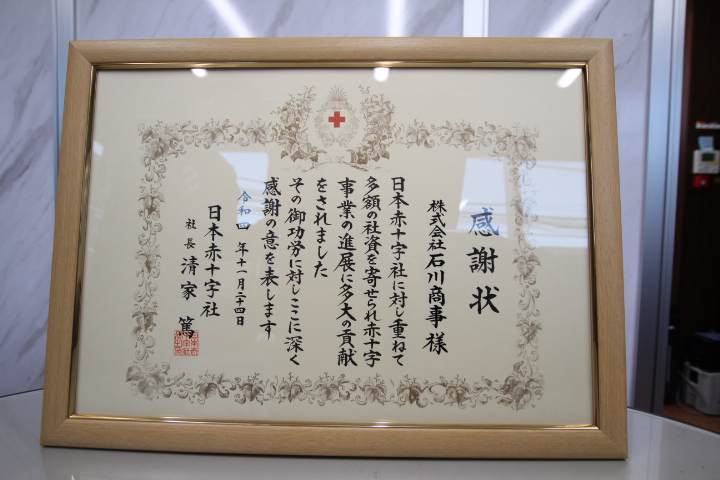 感謝状
株式会社石川商事様
日本赤十字社に対し重ねて
多額の社資を寄せられ赤十字
事業の進展に多大の貢献
をされました
その御功労に対しここに深く
感謝の意を表します
令和四年十一月二十四日
日本赤十字社
社長 清家 篤